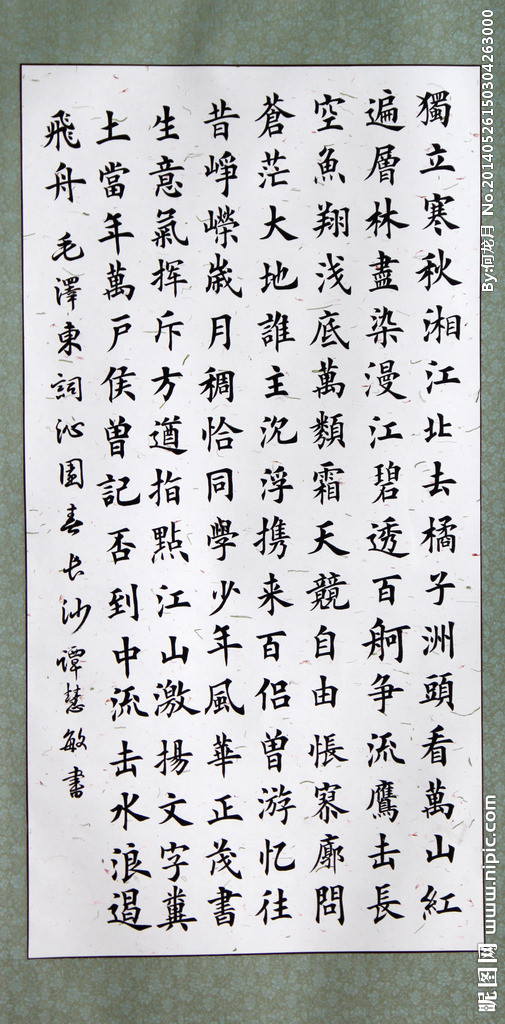 獨立寒秋湘江北去橘子洲頭看萬山紅
遍層林盡染漫江碧透百舸争流鷹击長
空魚翔浅底萬類霜天競自由悵寥廓問
蒼茫大地誰主沉浮携来百侣曾游忆往
昔崢嶸歲月稠恰同學少年風華正茂書
生意氣挥斥方遒指點江山激揚文字糞
土當年萬户侯曾記否到中流击水浪遏
飛舟 毛澤東詞沁園春长沙 譚慧敏書
By:何龙月 No.20140526150304263000
昵图网 www.nipic.com